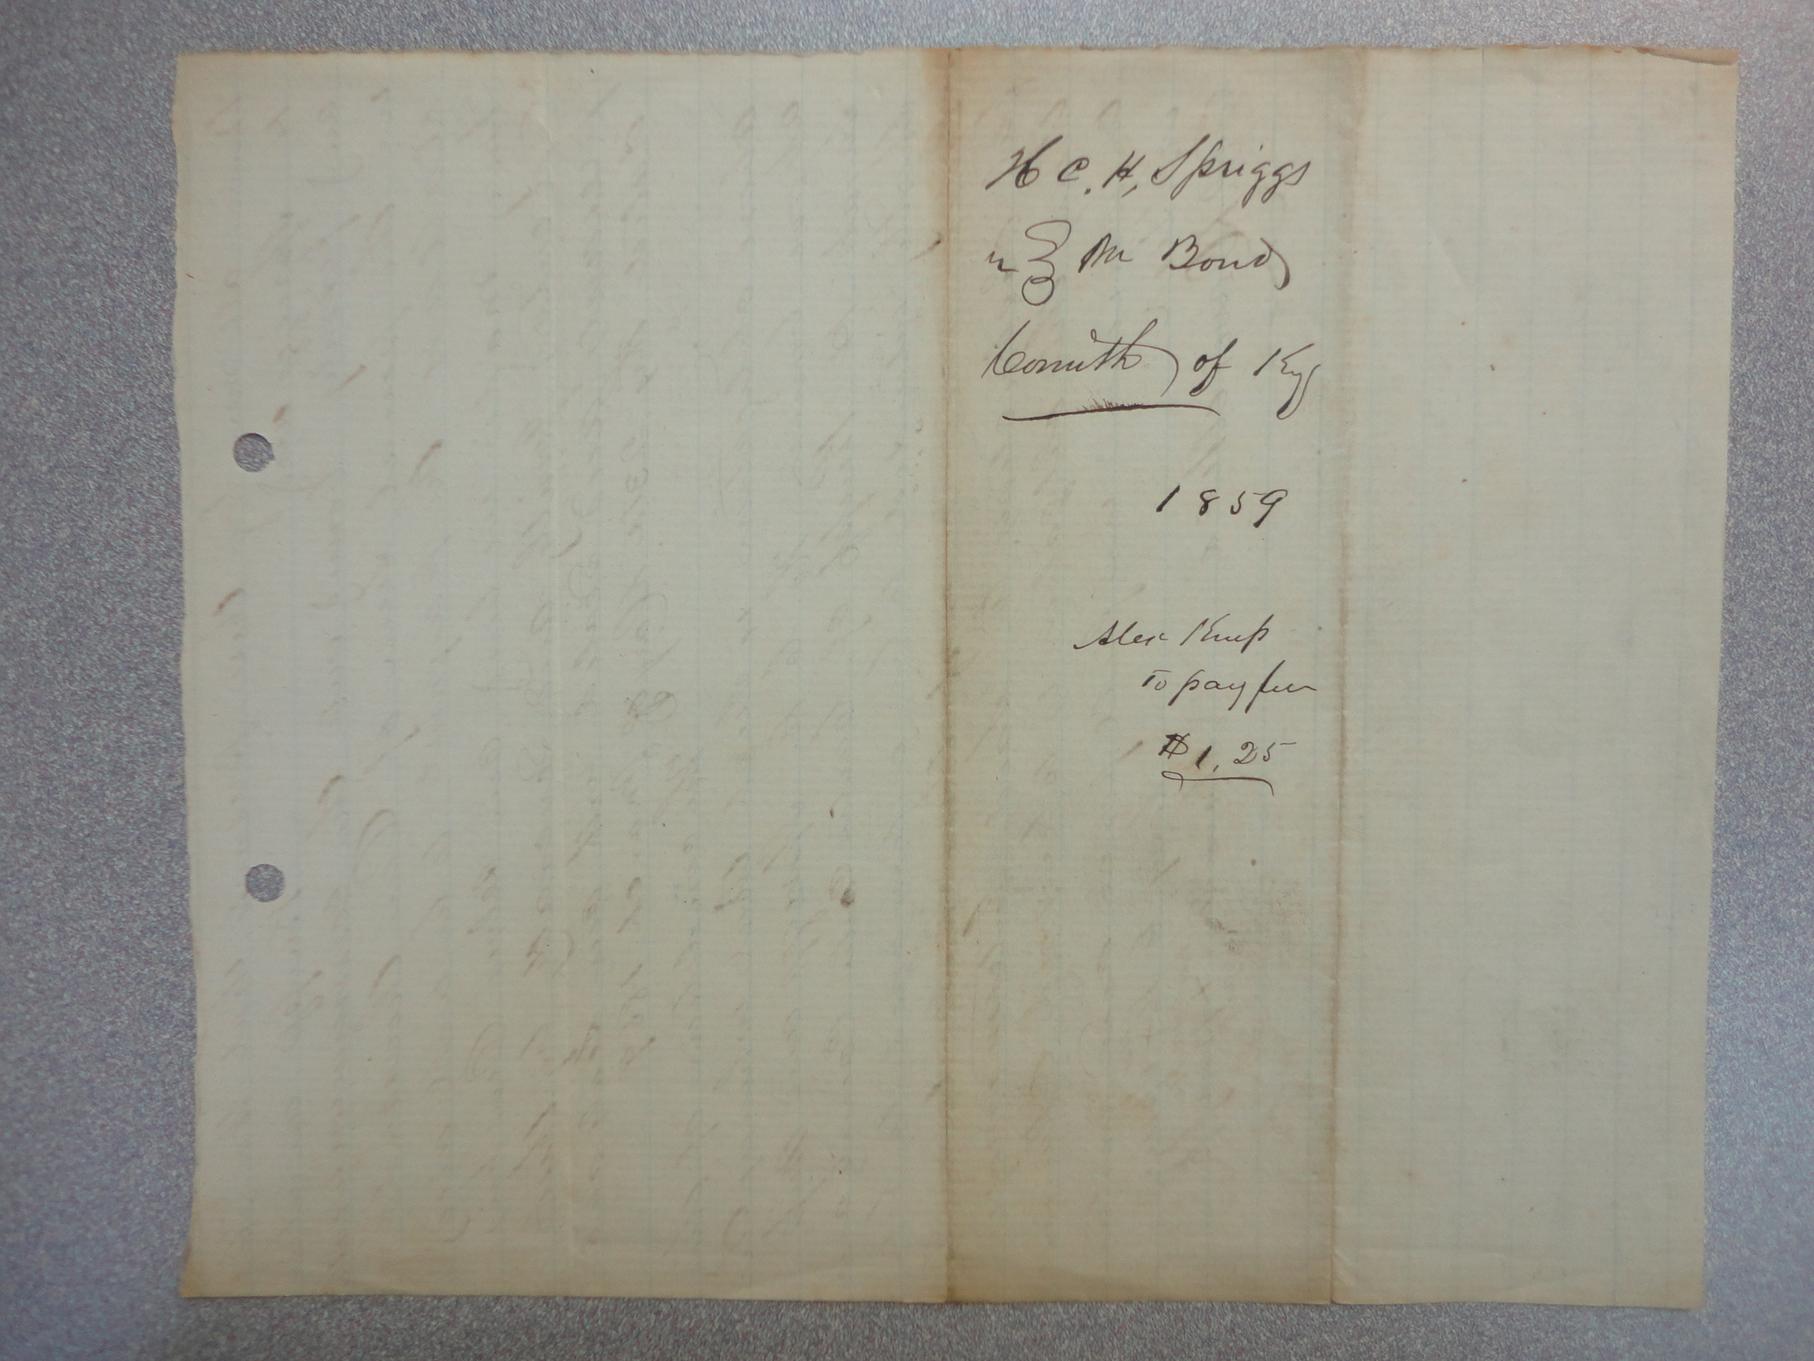 H C. H. Spriggs
M Bond
Comth of Ky
1859
Alex Kemp
To pay fee
$1.25